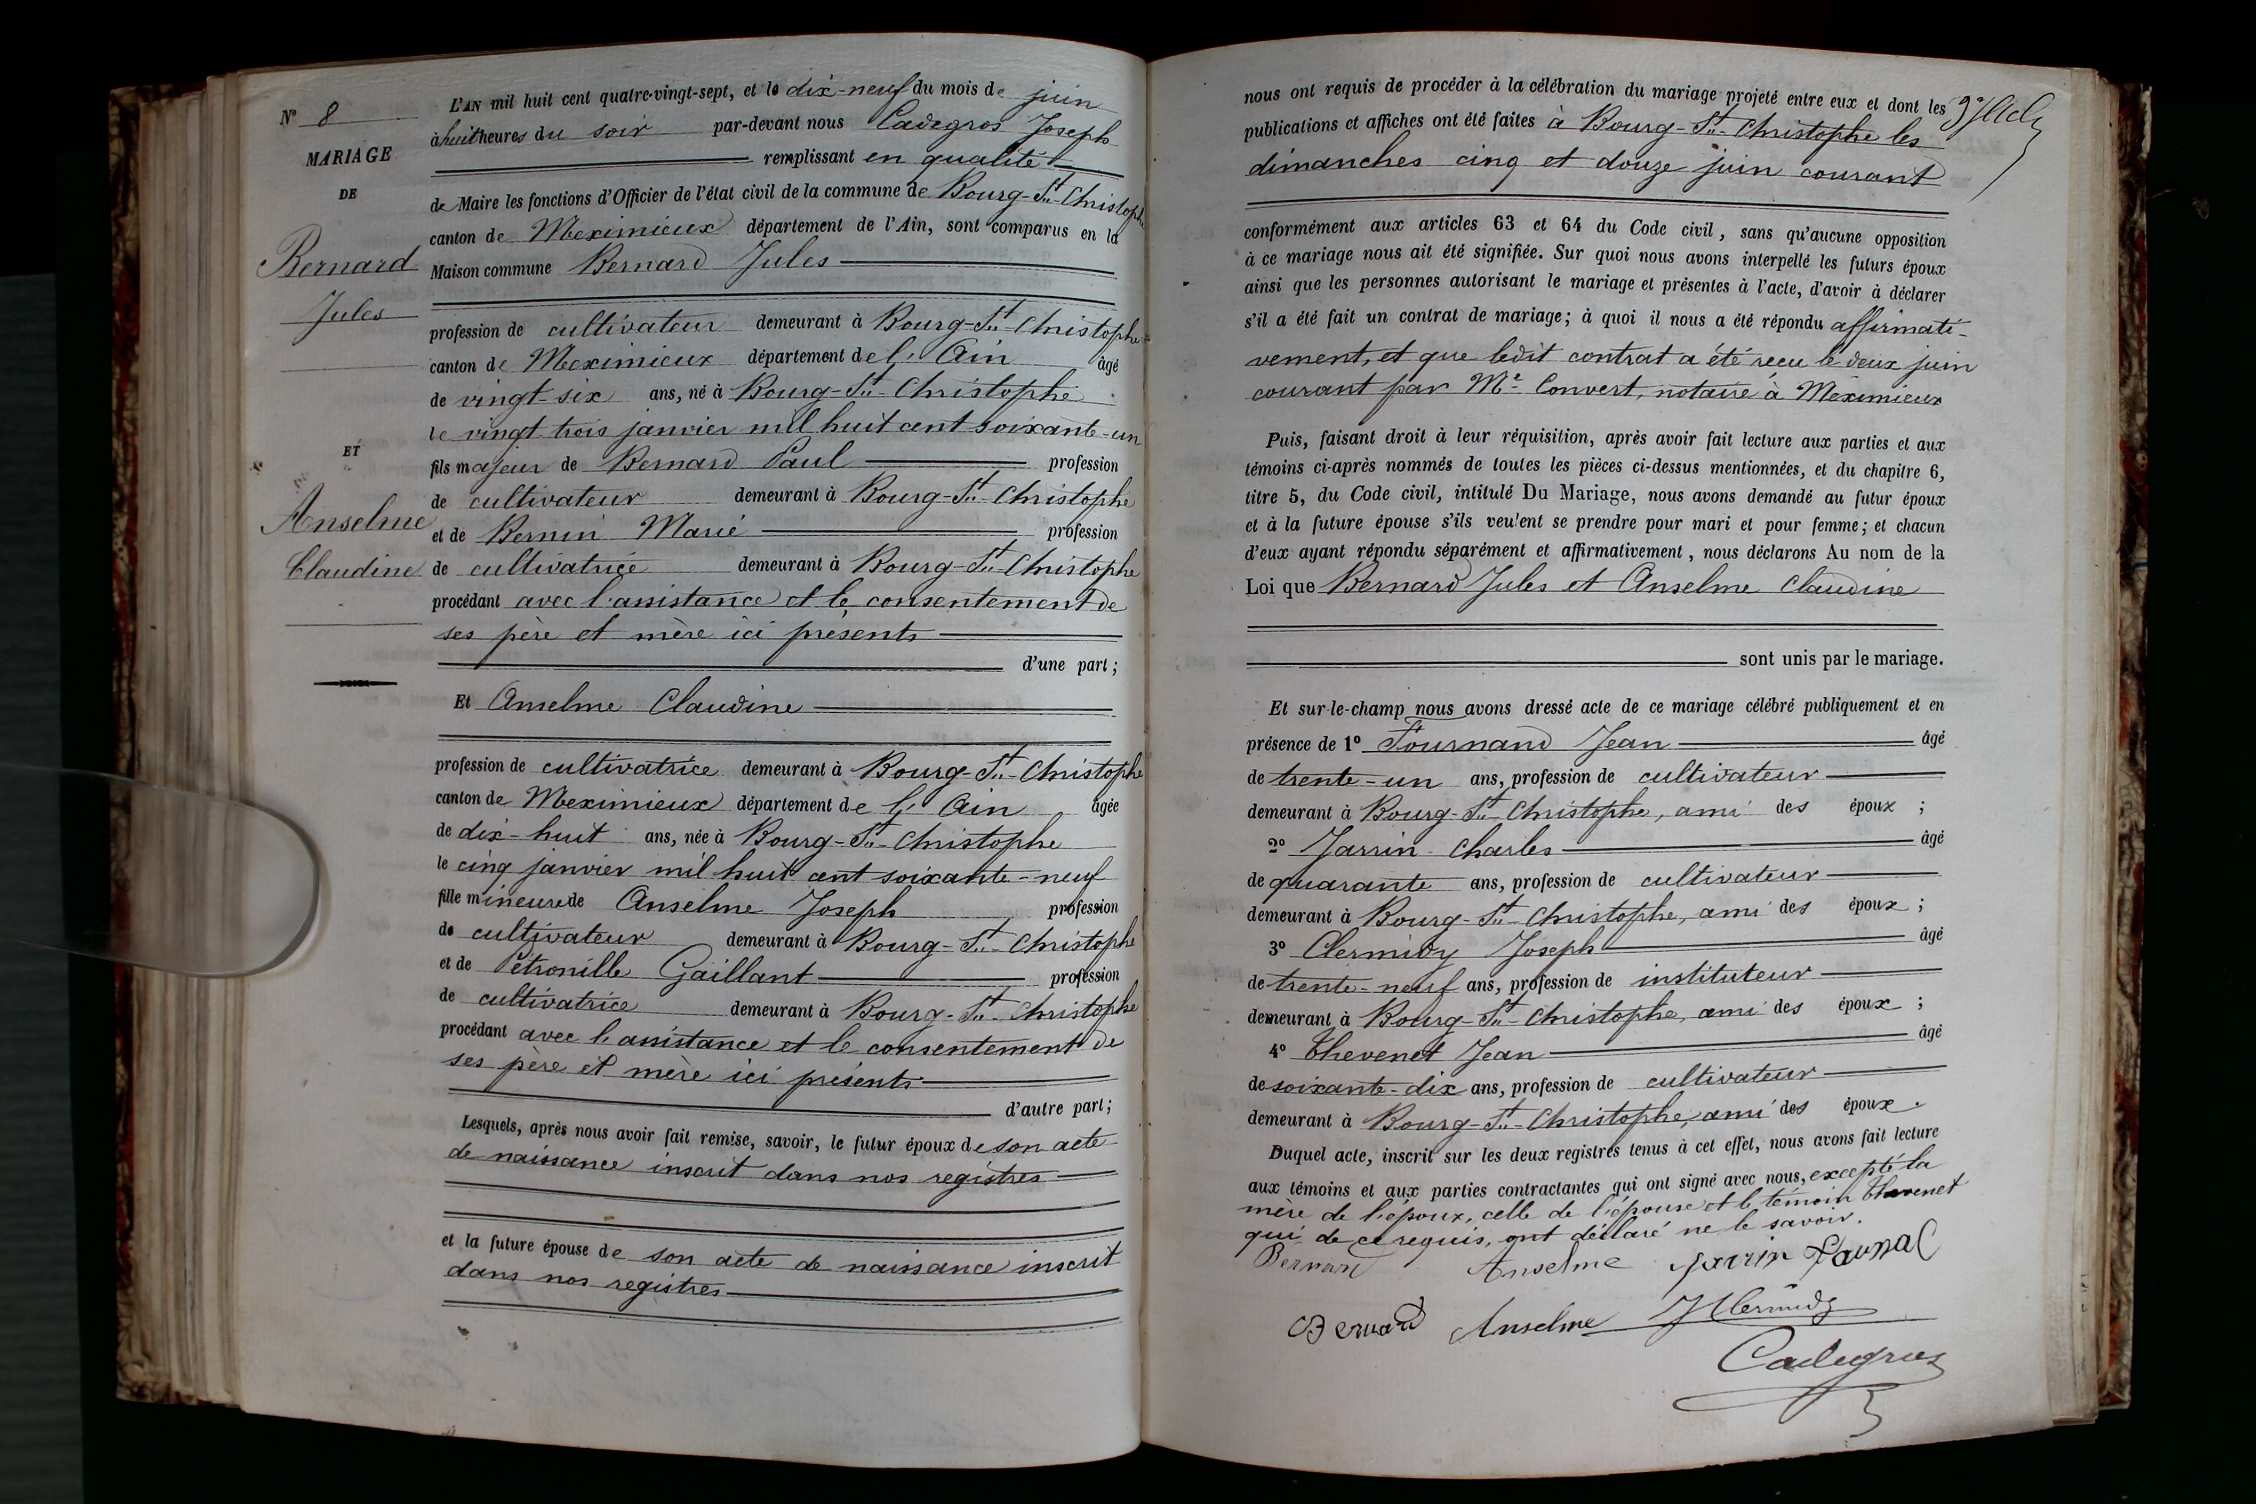 N° 8
MARIAGE
DE
Bernard
Jules
ET
Anselme
Claudine
L'AN mil huit cent quatre-vingt-sept, et le dix-neuf du mois de juin
à huit heures du soir par-devant nous Cadegros Joseph
remplissant en qualité
de Maire les fonctions d'Officier de l'état civil de la commune de Bourg-St-Christophe
canton de Meximieux département de l'Ain, sont comparus en la
Maison commune Bernard Jules
profession de cultivateur demeurant à Bourg-St-Christophe
canton de Meximieux département de l'Ain âgé
de vingt-six ans, né à Bourg-St-Christophe
le vingt-trois janvier mil huit cent soixante-un
fils majeur de Bernard Paul profession
de cultivateur demeurant à Bourg-St-Christophe
et de Bernin Marie profession
de cultivatrice demeurant à Bourg-St-Christophe
procédant avec l'assistance et le consentement de
ses père et mère ici présents
d'une part;
Et Anselme Claudine
profession de cultivatrice demeurant à Bourg-St-Christophe
canton de Meximieux département de l'Ain âgée
de dix-huit ans, née à Bourg-St-Christophe
le cinq janvier mil huit cent soixante-neuf
fille mineure de Anselme Joseph profession
de cultivateur demeurant à Bourg-St-Christophe
et de Pétronille Gaillant profession
de cultivatrice demeurant à Bourg-St-Christophe
procédant avec l'assistance et le consentement de
ses père et mère ici présents
d'autre part;
Lesquels, après nous avoir fait remise, savoir, le futur époux de son acte
de naissance inscrit dans nos registres
et la future épouse de son acte de naissance inscrit
dans nos registres
nous ont requis de procéder à la célébration du mariage projeté entre eux et dont les
publications et affiches ont été faites à Bourg-St-Christophe les
dimanches cinq et douze juin courant
conformément aux articles 63 et 64 du Code civil, sans qu'aucune opposition
à ce mariage nous ait été signifiée. Sur quoi nous avons interpellé les futurs époux
ainsi que les personnes autorisant le mariage et présentes à l'acte, d'avoir à déclarer
s'il a été fait un contrat de mariage; à quoi il nous a été répondu affirmati-
vement, et que ledit contrat a été reçu le deux juin
courant par Me Convert, notaire à Meximieux
Puis, faisant droit à leur réquisition, après avoir fait lecture aux parties et aux
témoins ci-après nommés de toutes les pièces ci-dessus mentionnées, et du chapitre 6,
titre 5, du Code civil, intitulé Du Mariage, nous avons demandé au futur époux
et à la future épouse s'ils veulent se prendre pour mari et pour femme; et chacun
d'eux ayant répondu séparément et affirmativement, nous déclarons Au nom de la
Loi que Bernard Jules et Anselme Claudine
sont unis par le mariage.
Et sur-le-champ nous avons dressé acte de ce mariage célébré publiquement et en
présence de 1° Fournand Jean âgé
de trente-un ans, profession de cultivateur
demeurant à Bourg-St-Christophe, ami des époux;
2° Jarrin Charles âgé
de quarante ans, profession de cultivateur
demeurant à Bourg-St-Christophe, ami des époux;
3° Clermidy Joseph âgé
de trente-neuf ans, profession de instituteur
demeurant à Bourg-St-Christophe, ami des époux;
4° Thevenet Jean âgé
de soixante-dix ans, profession de cultivateur
demeurant à Bourg-St-Christophe, ami des époux.
Duquel acte, inscrit sur les deux registres tenus à cet effet, nous avons fait lecture
aux témoins et aux parties contractantes qui ont signé avec nous, excepté la
mère de l'époux, celle de l'épouse et le témoin Thevenet
qui de ce requis, ont déclaré ne le savoir.
Bernard Anselme Jarrin
Bernard Anselme JClermidy
Cadegros